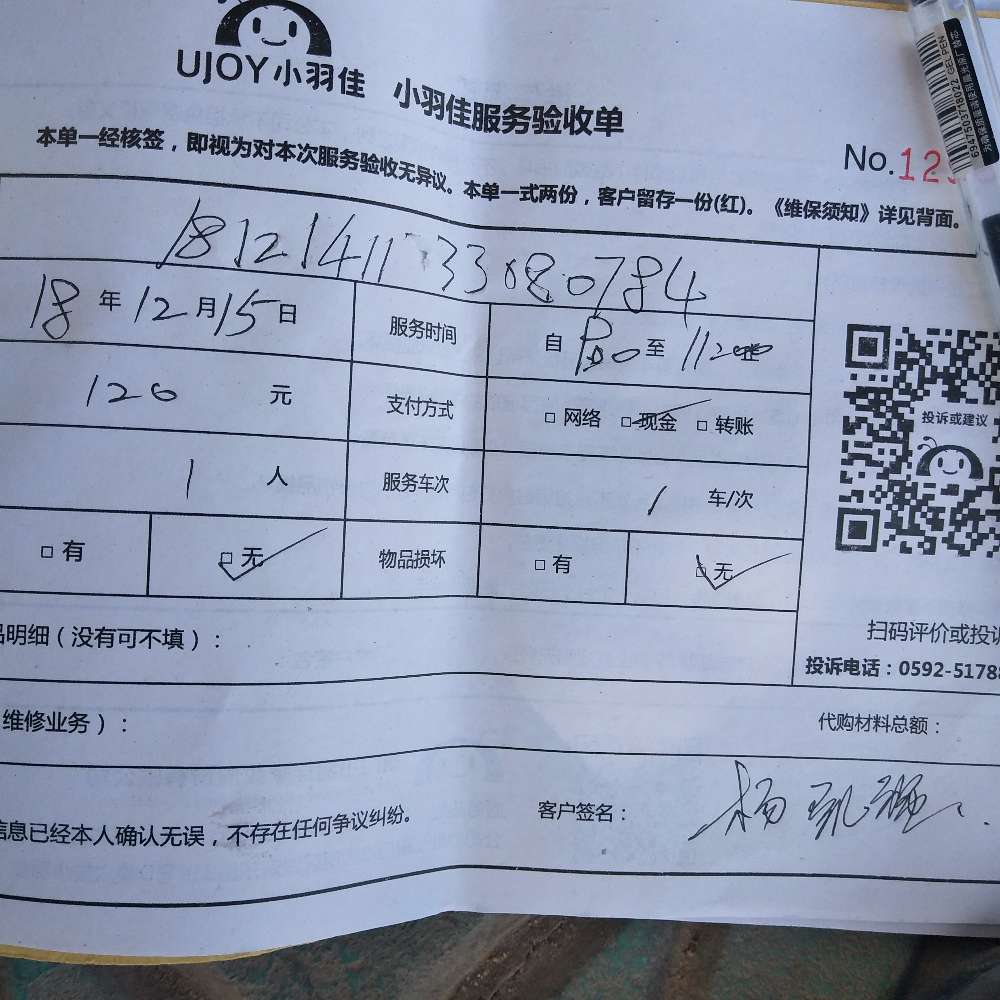 UJOY小羽佳 小羽佳服务验收单
本单一经核签，即视为对本次服务验收无异议。本单一式两份，客户留存一份(红)。《维保须知》详见背面。
No.12
1812141133080784
18年12月15日 服务时间 自 至
120 元 支付方式 □网络 □现金 □转账
1 人 服务车次 1 车/次
□有 □无 物品损坏 □有 □无
投诉或建议
品明细（没有可不填）：
扫码评价或投诉
投诉电话：0592-5178
维修业务）： 代购材料总额：
信息已经本人确认无误，不存在任何争议纠纷。 客户签名： 杨
6947503718022 GEL PEN